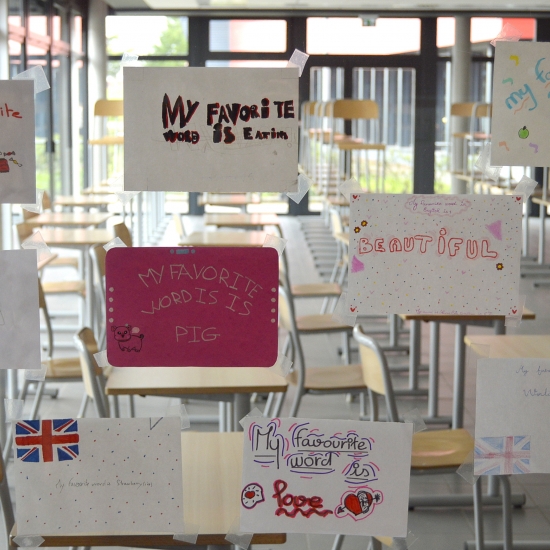 MY FAVORiTE
WORD iS EATiN
my f
MY FAVORITE
WORD IS IS
PIG
BEAUTIFUL
My favourite word is Strawberry
My favourite
word is
love
My